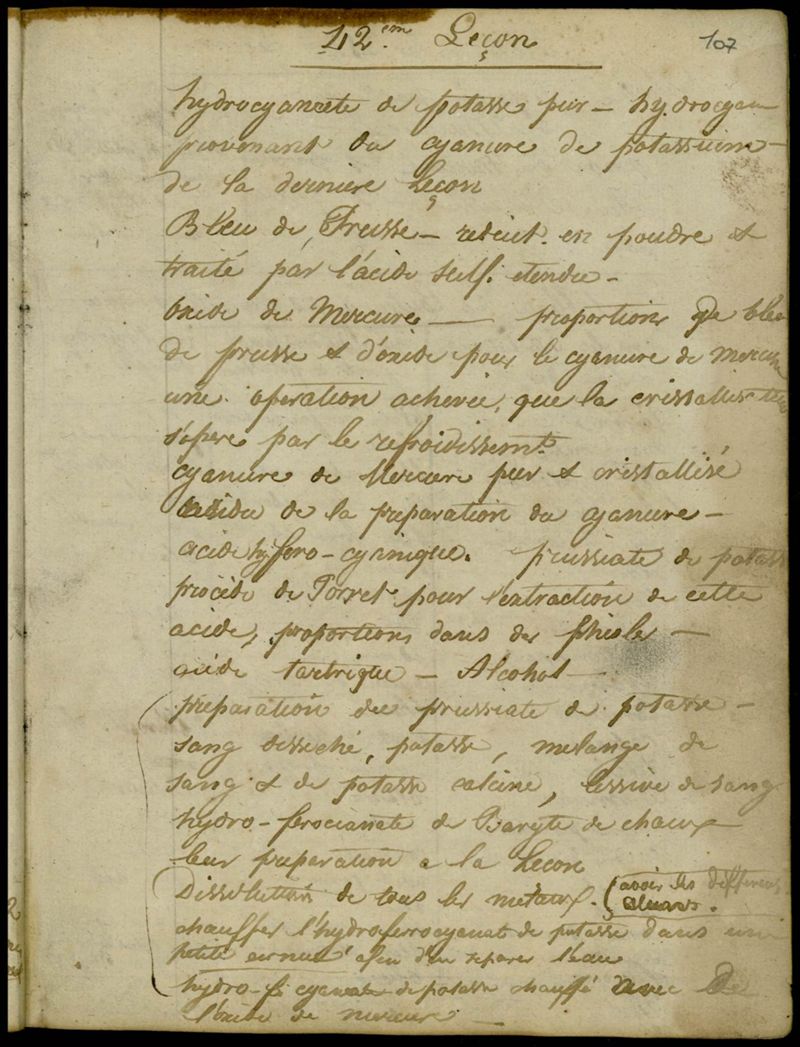 42.em Leçon
107
hydrocyanate de potasse pur — hydrocyan
provenant du cyanure de potassium —
de la derniere Leçon
Bleu de Prusse — reduit en poudre &
traité par l'acide sulf. etendu —
oxide de Mercure — proportions de bleu
de prusse & d'oxide pour le cyanure de mercure
une operation achevée, que la cristallisation
s'opere par le refroidissemt
cyanure de Mercure pur & cristallisé
residu de la preparation du cyanure —
acide hydro-cyanique. prussiate de potasse
procédé de Porret pour l'extraction de cette
acide, proportions dans des phioles —
acide tartrique — Alcohol —
preparation du prussiate de potasse —
sang desseché, potasse, melange de
sang & de potasse calciné, lessive de sang
hydro-ferocianate de Baryte de chaux —
leur preparation a la Leçon
Dissolution de tous les metaux. (avoir les differens
chauffer l'hydroferrocyanat de potasse dans une
petite cornue afin d'en separer l'eau
hydro-f. cyanate de potasse chauffé avec de
l'oxide de mercure —